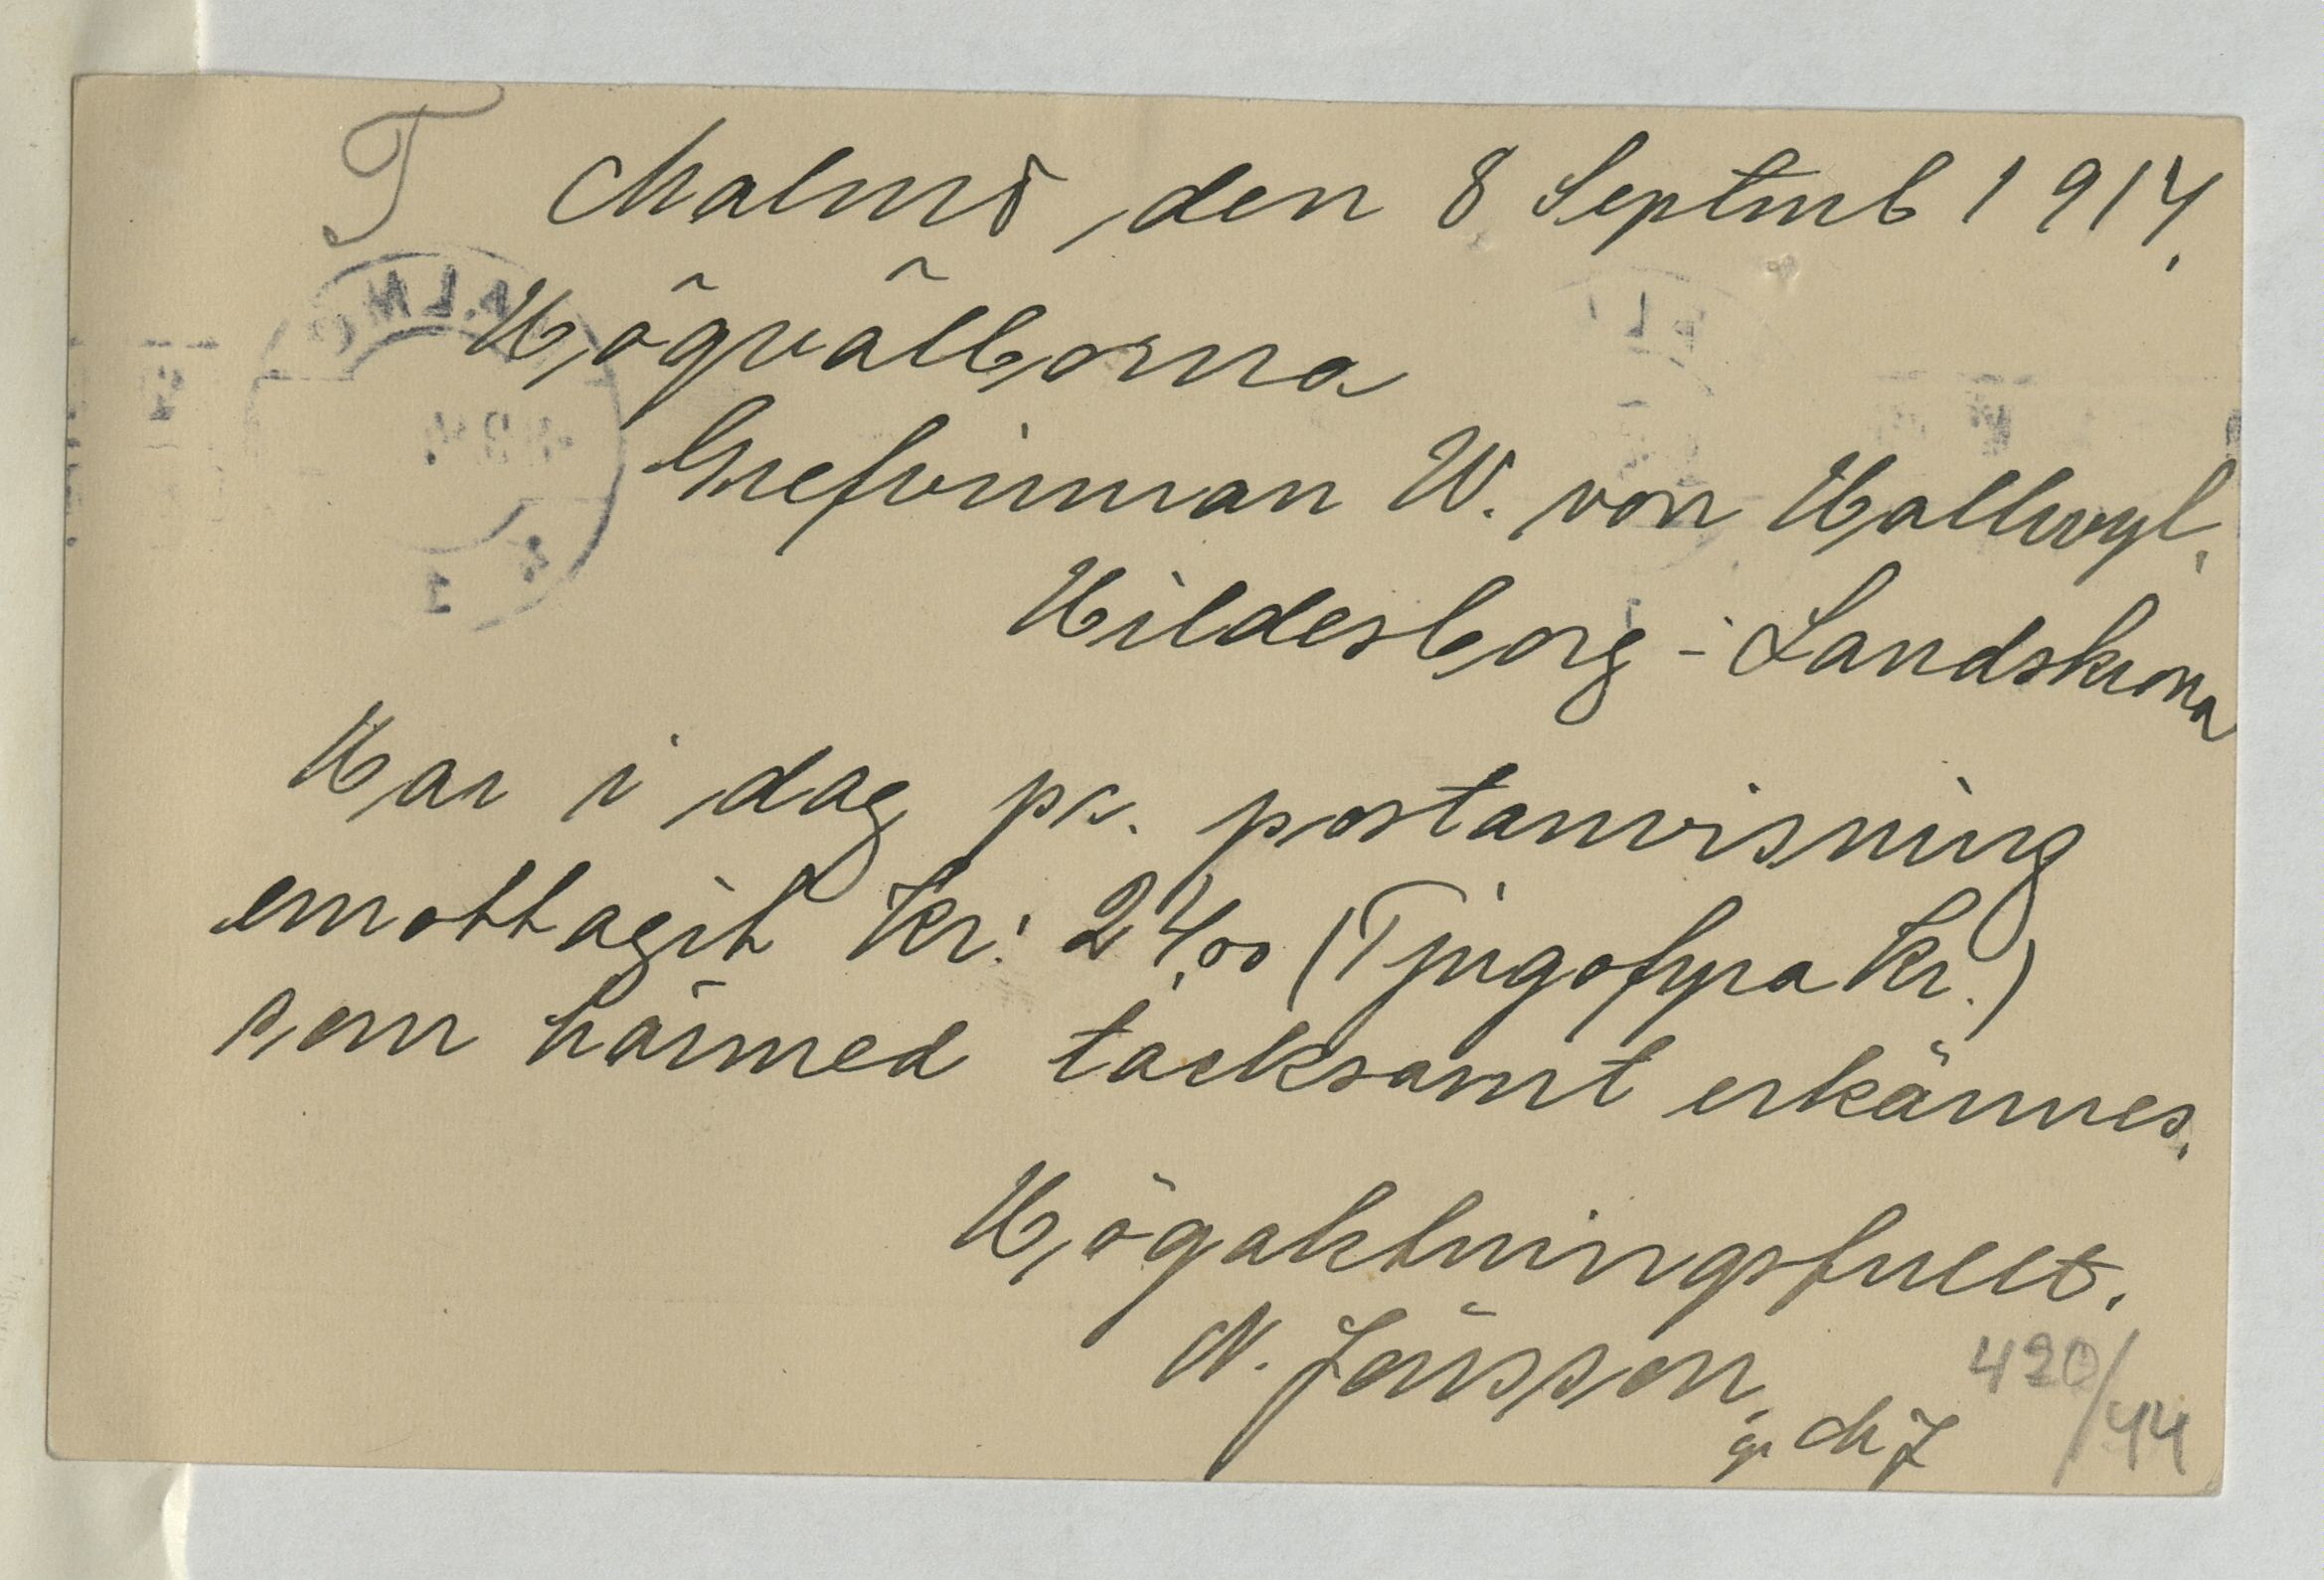 T
Malmö, den 8 Septmb 1914.
Högvälborna
Grefvinnan W. von Hallwyl.
Hildesborg - Landskrona
Har i dag pr. postanvisning
emottagit Kr: 24,00 (Tjugofyra Kr.)
som härmed tacksamt erkännes.
Högaktningsfullt.
N. Jönsson
gm MJ
420/44